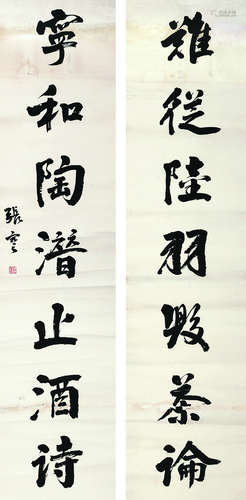 難從陸羽毀茶論
寧和陶潛止酒詩
張謇